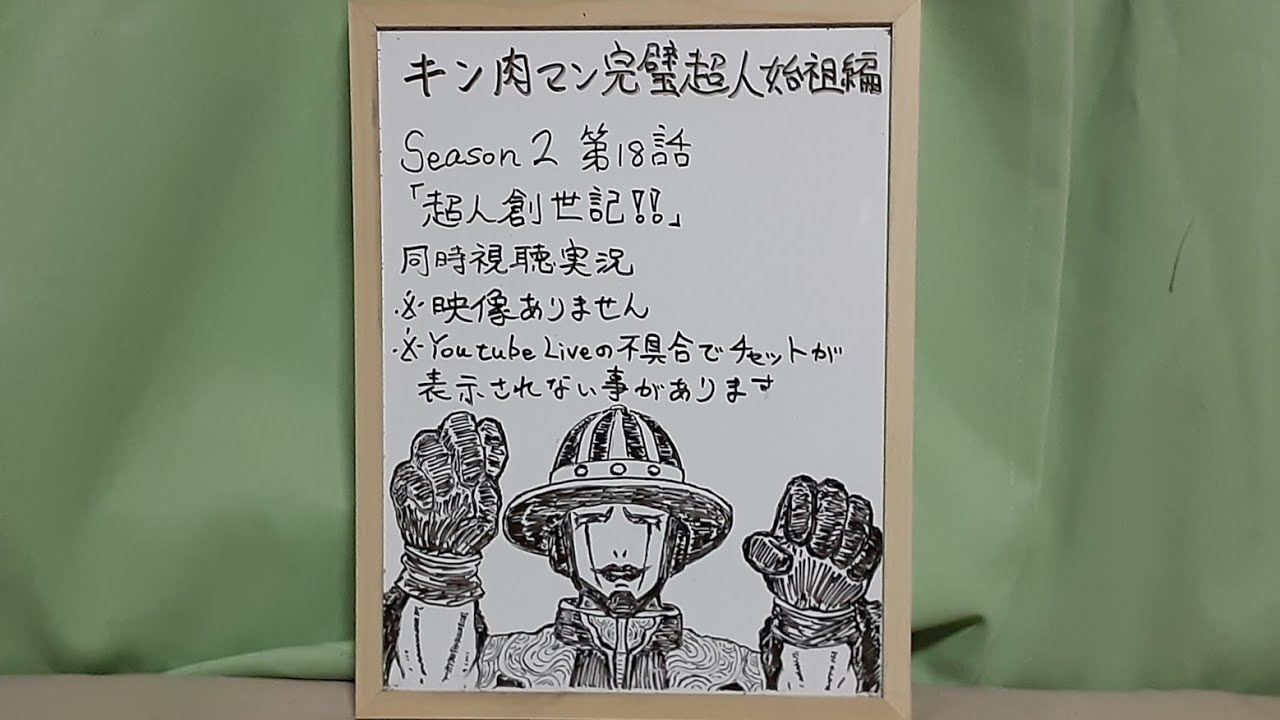 キン肉マン完璧超人始祖編
Season2 第18話
「超人創世記!!」
同時視聴実況
※映像ありません
※Youtube Liveの不具合でチャットが
表示されない事があります